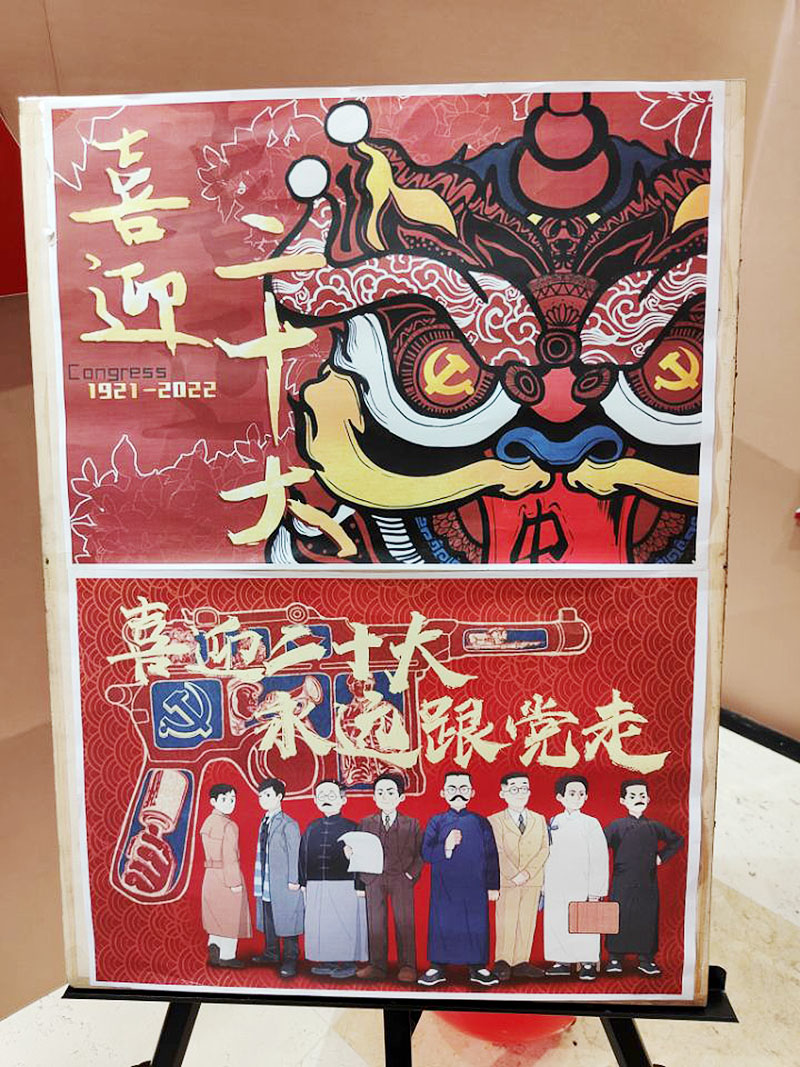 喜迎
二十大
Congress
1921-2022
中
喜迎二十大
永远跟党走